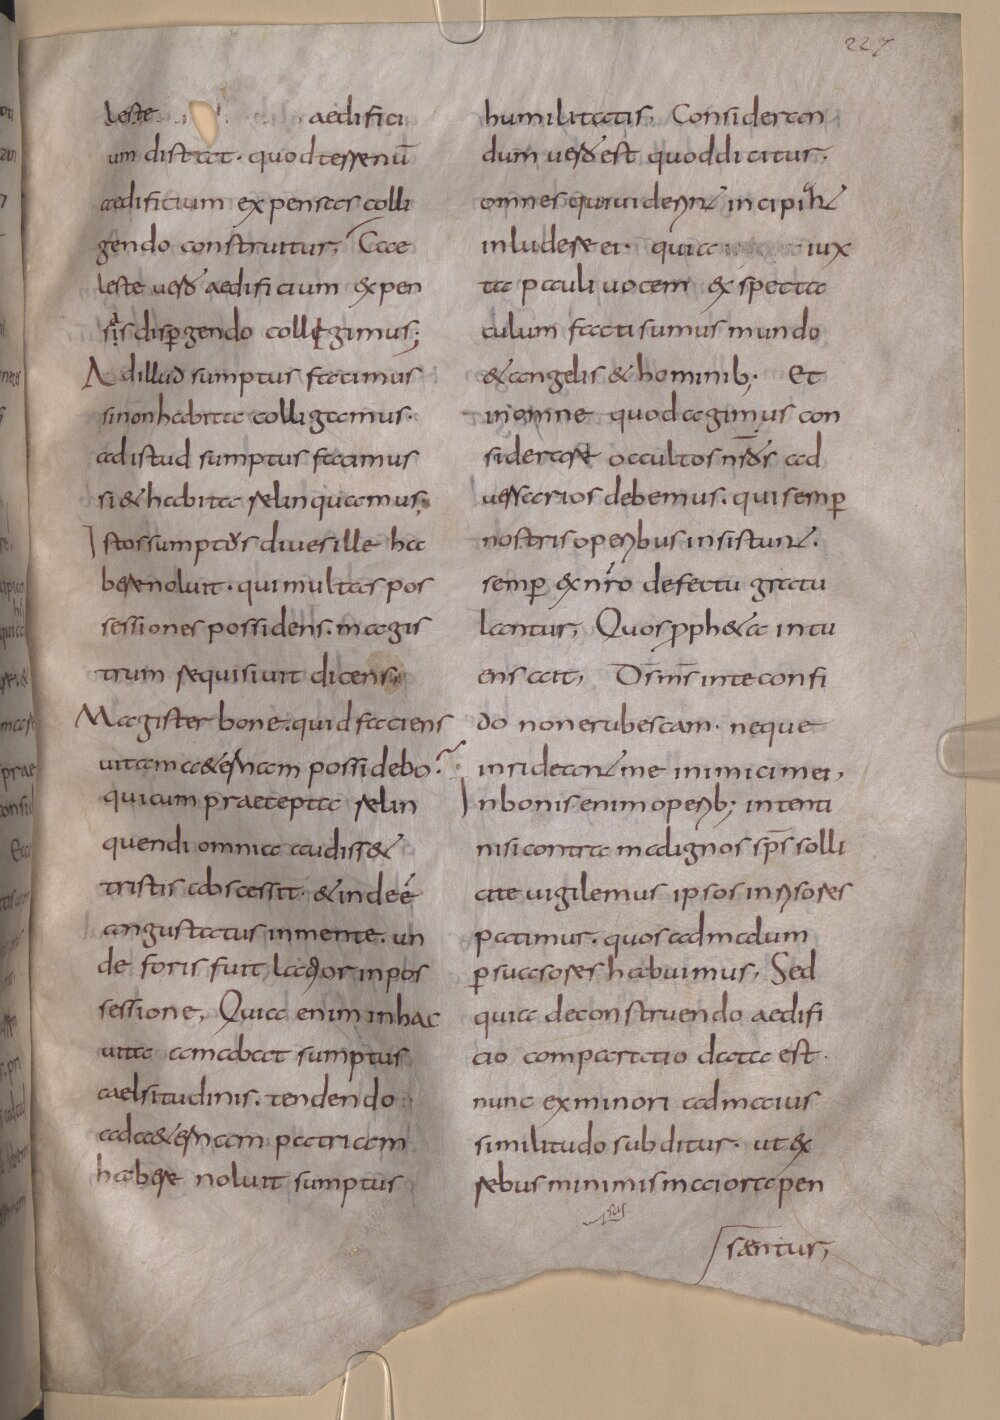 227
leste aedifici
um distat. quod terrenū
aedificium expensas colli
gendo construitur, Cae
leste uero aedificium expen
sas dispergendo collegimus;
Adillud sumptus facimus
sinonhabita colligamus.
adistud sumptus facimus
si&habita relinquamus;
Istossumptus diuesille ha
berenoluit. quimultas pos
sessiones possidens. magis
trum requisiuit dicens;
Magister bone. quid faciens
uitam a&ernam possidebo?
quicum praecepta relin
quendi omnia audiss&
tristis abscessit. &indeē
angustatus inmente. un
de foris fuit latior inpos
sessione, Quia enim inhac
uita amabat sumptus
caelsitudinis. tendendo
ada&ernam patriam
habere noluit sumptus
humilitatis, Consideran
dum uero est quoddicitur.
omnes quiuiderint incipiant
inludere ei. quia iux
ta pauli uocem expecta
culum facti sumus mundo
&angelis &hominib; Et
inomne quodagimus con
siderare occultos nr̄os ad
uersarios debemus. quisemp̱
nostrisoperibus insistunt.
semp̱ ex nr̄o defectu gratu
lantur, Quosp̱ph&a intu
ens ait, Ds̄ms̄ inte confi
do nonerubescam. neque
inrideant me inimici mei,
Inbonisenimoperib; intenti
nisicontra malignos sp̄s solli
cite uigilemus ipsos inrisores
patimur. quosadmalum
p̱suasores habuimus, Sed
quia deconstruendo aedifi
cio comparatio data est.
nunc exminori admaius
similitudo subditur. ut ex
rebus minimis maiora pen
sentur,